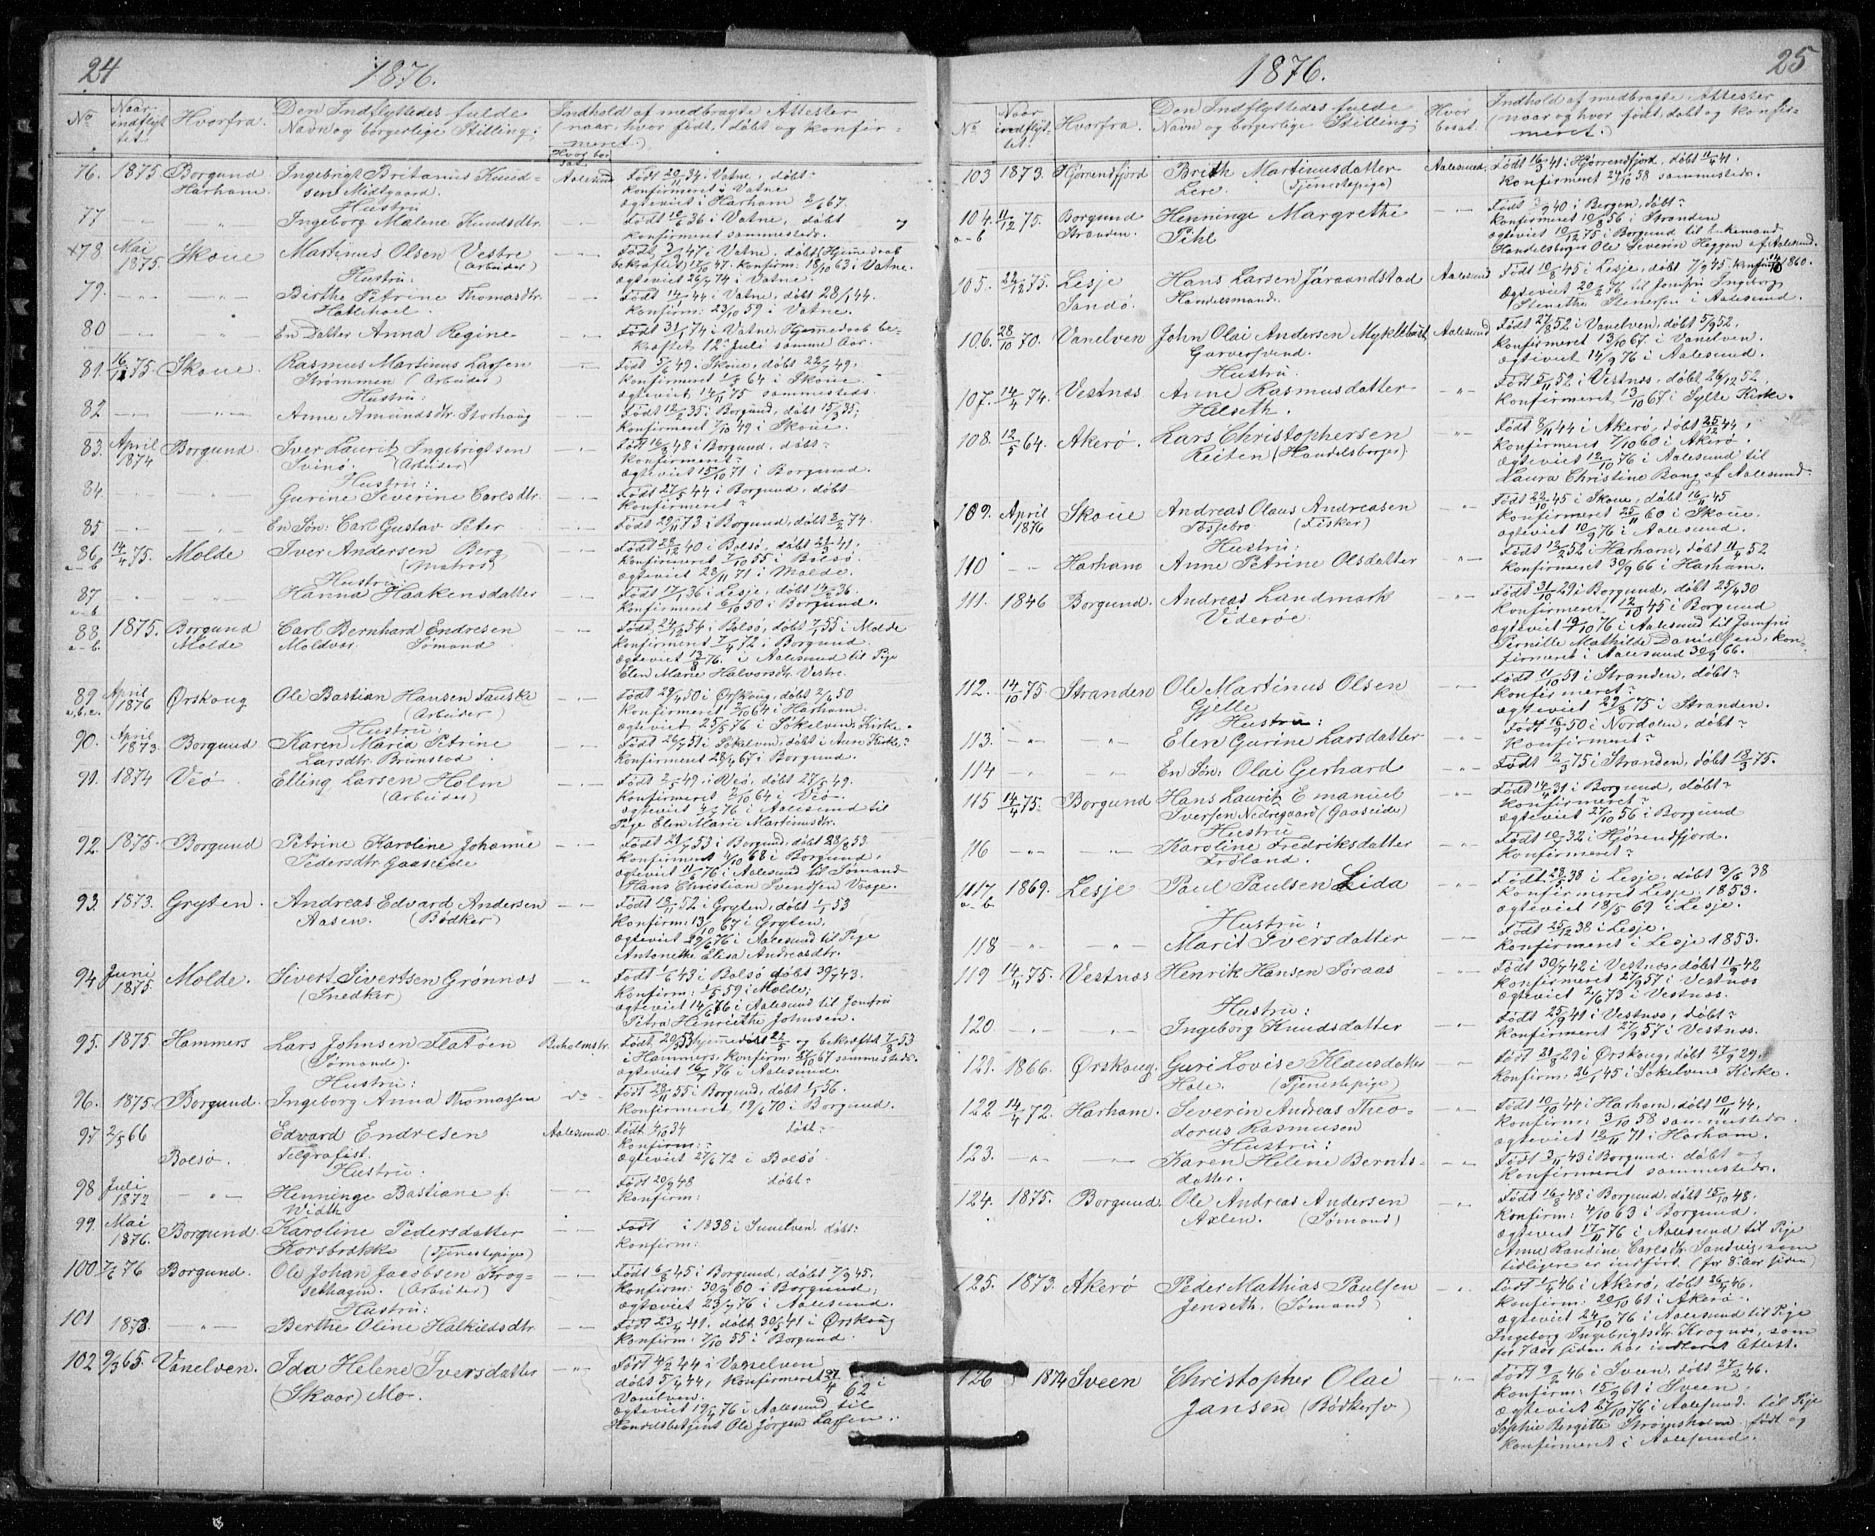 24
1876.
No
Naar indflyttet.
Hvorfra.
Den Indflyttedes fulde Navn og borgerlige Stilling.
Hvor bosat.
Indhold af medbragte Attester (naar, hvor født, døbt og konfirmeret.)
76. 1875 Borgund Ingebrigt Britanus Knud- Aalesund Født 20/11 34 i Vatne, døbt-
Harham. sen Midtgaard. konfirmeret i Vatne
Hustru ægteviet i Harham 2/6 67.
77 Ingeborg Malene Knudsdtr. Født 10/6 36 i Vatne, døbt
konfirmeret sammesteds.
78 Mai 1875 Skoue Martinus Olsen Vestre Født 3/9 47 i Vatne, døbt (Hjemmedaab
(Arbeider) bekræftet 17/10 47. konfirm: 18/10 63 i Vatne.
Hustru: ægteviet 26/7 74 i Vatne.
79. Birthe Petrine Thomasdtr. Født 14/1 44 i Vatne, døbt 28/1 44.
Hattehoel. konfirm: 23/10 59 i Vatne.
80 En Datter Anna Regine Født 31/5 74 i Vatne, Hjemmedaab be-
kræftet 12te Juli samme Aar.
81. 16/12 75 Skoue. Rasmus Martinus Larsen Født 5/6 49. Skoue, døbt 22/7 49.
Strømmen (Arbeider) konfirmeret 1/7 64 i Skoue.
Hustru: ægteviet 14/11 75 sammesteds.
82 Anne Amundsdtr. Storhaug Født 12/2 35 i Borgund, døbt 15/3 35,
konfirmeret 7/10 49 i Skoue.
83. April 1874 Borgund Iver Laurits Ingebrigtsen Født 16/3 48 i Borgund, døbt-
Svinø. (Arbeider) konfirmeret-
Hustru: ægteviet 15/10 71 i Borgund.
84 Gurine Severine Carlsdtr. Født 27/5 44 i Borgund, døbt
konfirmeret-
85 En Søn: Carl Gustav Peter Født 29/11 73 i Borgund, døbt 2/2 74.
86 a-b 14/4 75. Molde Iver Andersen Berg Født 28/12 40 i Bolsø, døbt 24/1 41.
(Matros) konfirmeret 7/10 55 i Bolsø.
Hustru: ægteviet 23/11 71 i Molde.
87 a-b Hanna Haakensdatter Født 17/1 36 i Lesje, døbt 14/2 36.
konfirmeret 6/10 50 i Borgund.
88 a-b. 1875. Borgund Carl Bernhard Endresen Født 24/12 54 i Bolsø, døbt 7/1 55 i Molde
Molde Moldvær Sømand konfirmeret 7/4 72 i Borgund
ægteviet 13/8 76. i Aalesund til Pige
Elen Marie Halvorsdtr. Vestre.
89 a,b,c. April 1876 Ørskoug Ole Bastian Hansen Fauske Født 29/4 50 i Ørskoug, døbt 2/6 50
(Arbeider) konfirmeret 2/10 64 i Harham.
Hustru: ægteviet 25/5 76 i Søkelvens Kirke.
90. April 1873 Borgund Karen Maria Petrine Født 26/7 51 i Søkelven, døbt i Aure Kirke?
Larsdtr. Brunstad konfirmeret 28/4 67 i Borgund.
91. 1874 Veø. Elling Larsen Holm Født 2/5 49, i Veø, døbt 27/5 49.
(Arbeider) konfirmeret 2/10 64 i Veø.
ægteviet 4/6 76 i Aalesund til
Pige Elen Marie Martinusdtr.
92. 1875. Borgund Petrine Karoline Johanne Født 21/7 53 i Borgund, døbt 28/8 53
Pedersdtr. Gaaseide konfirmeret 4/10 68 i Borgund,
ægteviet 11/6 76 i Aalesund til Sømand
Hans Christian Svendsen Vaage.
93. 1873. Gryten. Andreas Edvard Andersen Født 13/11 52 i Gryten, døbt 1/1 53
Aasen. (Bødker) konfirm: 13/10 67 i Gryten,
ægteviet 29/6 76 i Aalesund til Pige
Antonette Elisa Andreasdtr.
94. Juni 1875. Molde. Sivert Sivertsen Grønnæs Født 1/6 43 i Bolsø døbt 30/7 43.
(Snedker) konfirm: 1/5 59 i Molde;
ægteviet 14/6 76 i Aalesund til Jomfru
Petra Henriette Johnsen.
95. 1875. Hammers Lars Johnsen Flatøen Buholmstr. Født 20/3 53 hjemmedøbt 22/5 og bekræftet 7/8 53
(Sømand) i Hammers, konfirm: 27/10 67 sammesteds.
Hustru: ægteviet 16/7 76 i Aalesund.
96. 1875. Borgund. Ingeborg Anna Thomassen do Født 28/11 55 i Borgund, døbt 1/1 56.
konfirmeret, 19/6 70 i Borgund.
97. 2/5 66 Edvard Endresen Aalesund. Født 4/10 34 døbt-
Bolsø. Telgrafist. konfirm:-
Hustru: ægteviet 27/6 72 i Bolsø
98 Juli 1872 Henninge Bastiane f: Født 20/9 48 døbt-
Width konfirm:
99. Mai 1876. Borgund. Karoline Pedersdatter Født i 1838 i Sunelven, døbt:
Korsbrække (Tjenestepige) konfirm:
100 7/6 76 Borgund. Ole Johan Jacobsen Krog- Født 6/8 45 i Borgund, døbt 7/9 45.
sethagen. (Arbeider) konfirm: 30/9 60 i Borgund;
Hustru: ægteviet 23/7 76 i Aalesund.
101 1873. Berthe Oline Halkildsdtr. Født 23/4 41. døbt 30/5 41 i Ørskoug
konfirm: 7/10 55 i Borgund.
102 9/3 65. Vanelven. Ida Helene Iversdatter Født 4/2 44 i Vanelven
(Skaar) Mo. døbt 5/4 44, konfirmeret 27/4 62 i
Vanelven.
ægteviet 19/4 76 i Aalesund til
Handelsbetjent Ole Jørgen Larsen.
1876.
25
No
Naar indflyttet.
Hvorfra.
Den Indflyttedes fulde Navn og borgerlige Stilling.
Hvor bosat.
Indhold af medbragte Attester (naar og hvor født, døbt og konfirmeret.)
103 1873. Hjørrendfjord Brith Martinusdatter Aalesund. Født 16/3 41 i Hjørrendfjord, døbt 11/4 41.
Lere. (Tjenestepige) konfirmeret 24/10 58 sammesteds.
104. a-b 11/12 75. Borgund Henninge Margrethe Født 3/9 40 i Bergen, døbt-
Stranden. Pihl konfirmeret 19/10 56 i Stranden
ægteviet 10/12 75 i Borgund til Enkemand
Handelsborger Ole Severin Heggen af Aalesund.
105. 24/12 75. Lesje Hans Larsen Jøraandstad Aalesund Født 10/8 45 i Lesje, døbt 7/9 45 konfirm 14/10 1860.
Sandø. Handelsmand. Ægteviet 20/2 76 til Jomfru Ingeborg
Stenethe Stenersen i Aalesund.
106. 28/10 70. Vanelven John Olai Andersen Myklebust Aalesund Født 27/8 52 i Vanelven, døbt 5/9 52,
Garversvend. konfirmeret 13/10 67 i Vanelven.
Hustru: ægteviet 14/9 76 i Aalesund.
107. 14/4 74. Vestnæs Anne Rasmusdatter Født 5/11 52 i Vestnæs, døbt 26/12 52,
Helseth. konfirmeret 13/10 67 i Sylte Kirke.
108. 12/5 64. Akerø. Lars Christophersen Født 8/11 44 i Akerø, døbt 25/12 44,
Reiten (Handelsborger) konfirmeret 7/10 60 i Akerø.
ægteviet 12/10 76 i Aalesund til
Laura Christine Bang af Aalesund.
109. April 1876 Skoue Andreas Olaus Andreasen Født 22/10 45 i Skoue, døbt 16/11 45
Fosbro (Fisker) konfirmeret 25/11 60 i Skoue.
Hustru: ægteviet 10/9 76 i Aalesund.
110 Harham Anne Petrine Olsdatter Født 12/2 52 i Harham, døbt 11/4 52
konfirmeret 30/9 66 i Harham.
111. 1846 Borgund. Andreas Landmark Født 31/10 29 i Borgund, døbt 25/4 30
Viderøe. konfirmeret 12/10 45 i Borgund
ægteviet 19/10 76 i Aalesund til Jomfru
Pernille Mathilde Danielsen, kon-
firmeret i Aalesund 30/9 66.
112. 14/10 75. Stranden Ole Martinus Olsen Født 11/10 51 i Stranden, døbt-
Gjelle konfirmeret-
Hustru: ægteviet 29/8 75 i Stranden.
113. Elen Gurine Larsdatter Født 16/9 50 i Nordalen, døbt-
konfirmeret-
114 En Søn: Olai Gerhard Født 2/3 75 i Stranden, døbt 12/3 75.
115 14/4 75. Borgund Hans Lauritz Emanuel Født 14/4 31 i Borgund, døbt-
Iversen Nedregaard (Gaaseide) konfirmeret-
Hustru ægteviet 27/10 56 i Borgund
116 Karoline Fredriksdatter Født 10/6 32 i Hjørendfjord.
Frøland. konfirmeret-
117. a-b 1869. Lesje Paul Paulsen Lida Født 28/4 38 i Lesje, døbt 3/6 38
konfirmeret Lesje 1853.
Hustru: ægteviet 18/5 69 i Lesje.
118 Marit Iversdatter Født 25/12 38 i Lesje.
konfirmeret i Lesje 1853.
119 14/4 75. Vestnæs Henrik Hansen Søraas Født 30/7 42 i Vestnæs, døbt 11/9 42
konfirmeret 27/9 57 i Vestnæs
Hustru: ægteviet 2/6 73 i Vestnæs.
120. Ingeborg Knudsdatter Født 25/9 41 i Vestnæs, døbt-
konfirmeret 27/9 57 i Vestnæs.
121. 1866. Ørskoug. Guri Lovise Klausdatter Født 21/8 29 i Ørskoug, døbt 27/9 29.
Hole. (Tjenestepige) konfirm: 26/1 45 i Søkelvens Kirke.
122 14/4 72. Harham. Severin Andreas Theo- Født 10/10 44 i Harham, døbt 10/11 44,
dorus Rasmusen konfirm: 3/10 58 sammesteds.
Hustru: ægteviet 12/11 71 i Harham.
123. Karen Helene Bernts- Født 3/11 43 i Borgund. døbt og
datter. konfirmeret sammesteds.
124. 1875. Borgund. Ole Andreas Andersen Født 16/8 48 i Borgund, døbt 15/10 48.
Axlen. (Sømand) konfirm: 4/10 63 i Borgund.
ægteviet 17/11 76 i Aalesund til Pige
Anne Randine Carlsdtr. Sandvig, som
tidligere er indført. (for 8 Aar siden)
125. 1873. Akerø Peder Mathias Paulsen Født 1/4 46 i Akerø, døbt 26/4 46.
Jenseth. (Sømand) konfirm: 20/10 61 i Akerø.
ægteviet 24/10 76 i Aalesund til Pige
Ingeborg Ingebrigtsdtr. Krognæs, som
for 7 Aar siden har indleveret Attest.
126 1874 Sveen Christopher Olai Født 9/2 46 i Sveen, døbt 27/2 46.
Jansen (Bødkersv) konfirm: 15/9 61 i Sveen,
ægteviet 27/10 76 i Aalesund til Pige
Sophie Bergitte Strømsholm født og
konfirmeret i Aalesund.